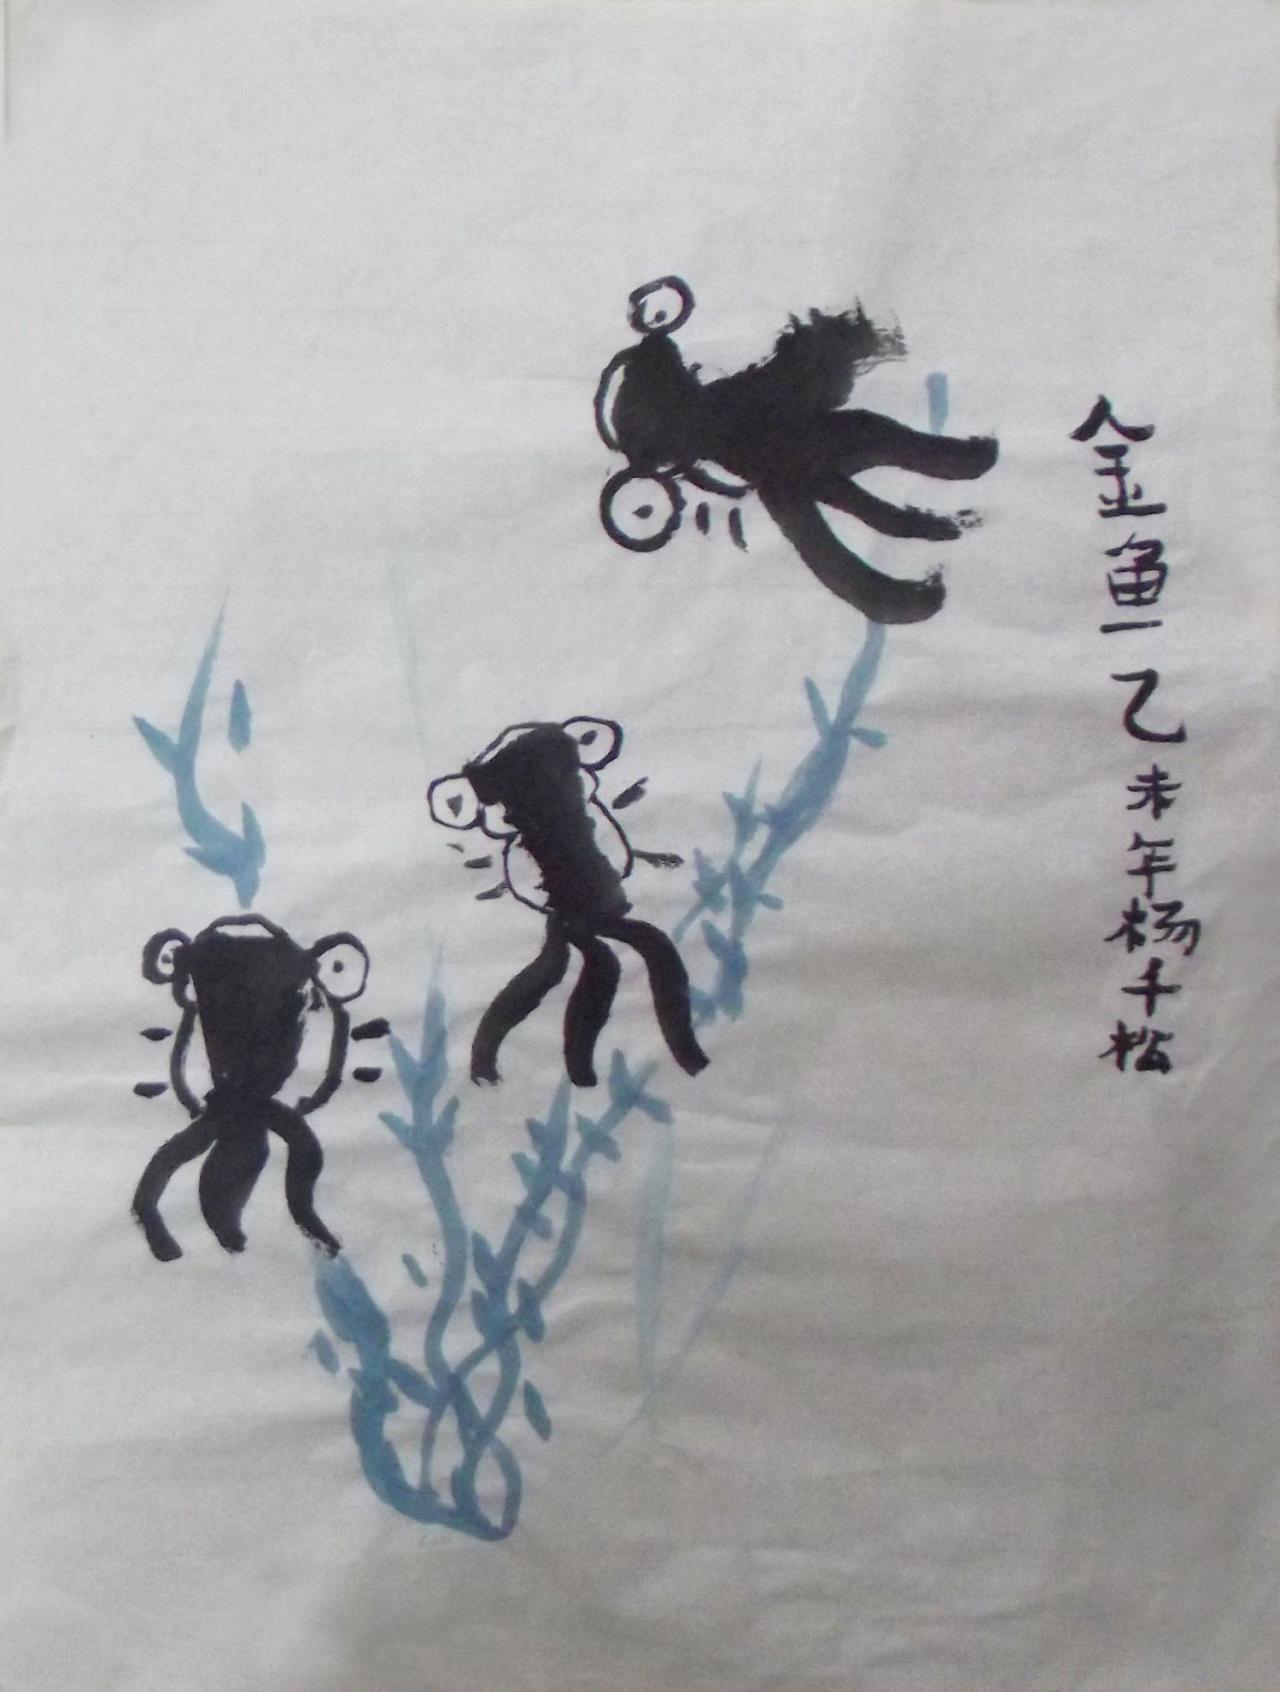 金鱼乙未年杨千松